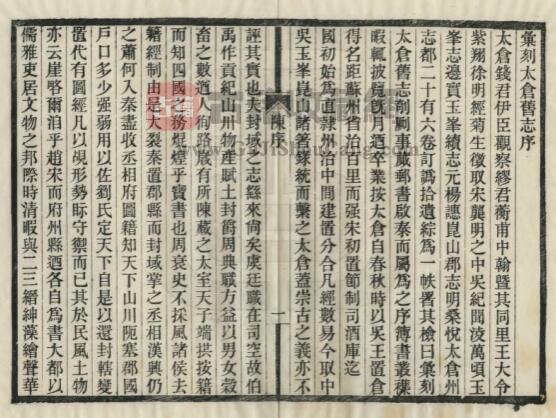 彙刻太倉舊志序
太倉錢君伊臣觀察繆君蘅甫中翰暨其同里王大令
紫翔徐明經菊生徵取宋龔明之中吳紀聞淩萬頃玉
峯志邊實玉峯續志元楊譓崑山郡志明桑悅太倉州
志都二十有六卷訂譌拾遺綜為一帙署其檢曰彙刻
太倉舊志剞劂事蕆郵書啟泰而屬為之序簿書叢襍
暇輒披覽旣迺卒業按太倉自春秋時以吳王置倉
得名距蘇州省治百里而强宋初置節制司酒庫迄
國初始為直隷州治中間建置分合凡經數易今取中
吳玉峯崑山諸舊
統而繫之太倉蓋崇古之義亦不
陳序
一
誣其實也夫封域之志繇來尙矣虞廷職在司空故伯
禹作貢紀山川物產賦土封爵周典職方益以男女穀
畜之數遒人徇路歲有所陳藏之太室天子端拱按籍
而知四國之務煌煌乎寶書也周衰史不採風諸侯去
籍經制由是大裂秦置郡縣而封域掌之丞相漢興仍
之蕭何入秦盡收丞相府圖籍知天下山川阨塞郡國
戶口多少强弱用以佐劉氏定天下自是以還封轄變
置代有圖經凡以覘形勢
守禦而已其於民風土物
亦云崖略爾洎乎趙宋而府州縣迺各自為書大都以
儒雅吏居文物之邦際時清暇與二三縉紳藻繪聲華